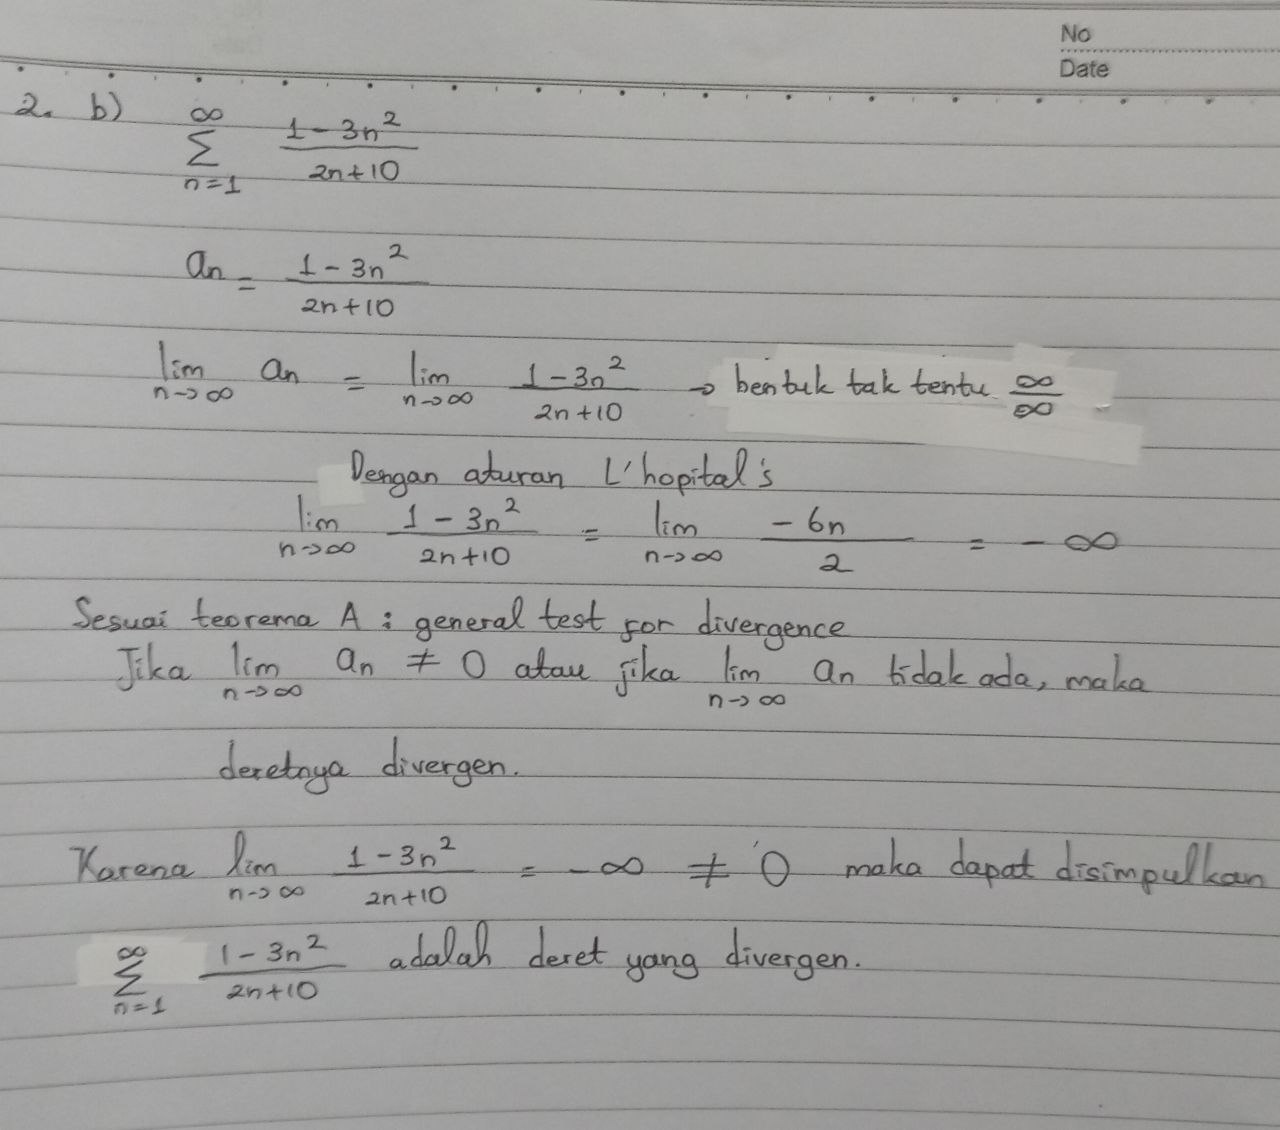 No
Date
2. b) ∞ Σ n=1 1-3n²/2n+10
an = 1-3n²/2n+10
lim n→∞ an = lim n→∞ 1-3n²/2n+10 → bentuk tak tentu ∞/∞
Dengan aturan L'hopital's
lim n→∞ 1-3n²/2n+10 = lim n→∞ -6n/2 = -∞
Sesuai teorema A : general test for divergence
Jika lim n→∞ an ≠ 0 atau jika lim n→∞ an tidak ada, maka
deretnya divergen.
Karena lim n→∞ 1-3n²/2n+10 = -∞ ≠ 0 maka dapat disimpulkan
∞ Σ n=1 1-3n²/2n+10 adalah deret yang divergen.